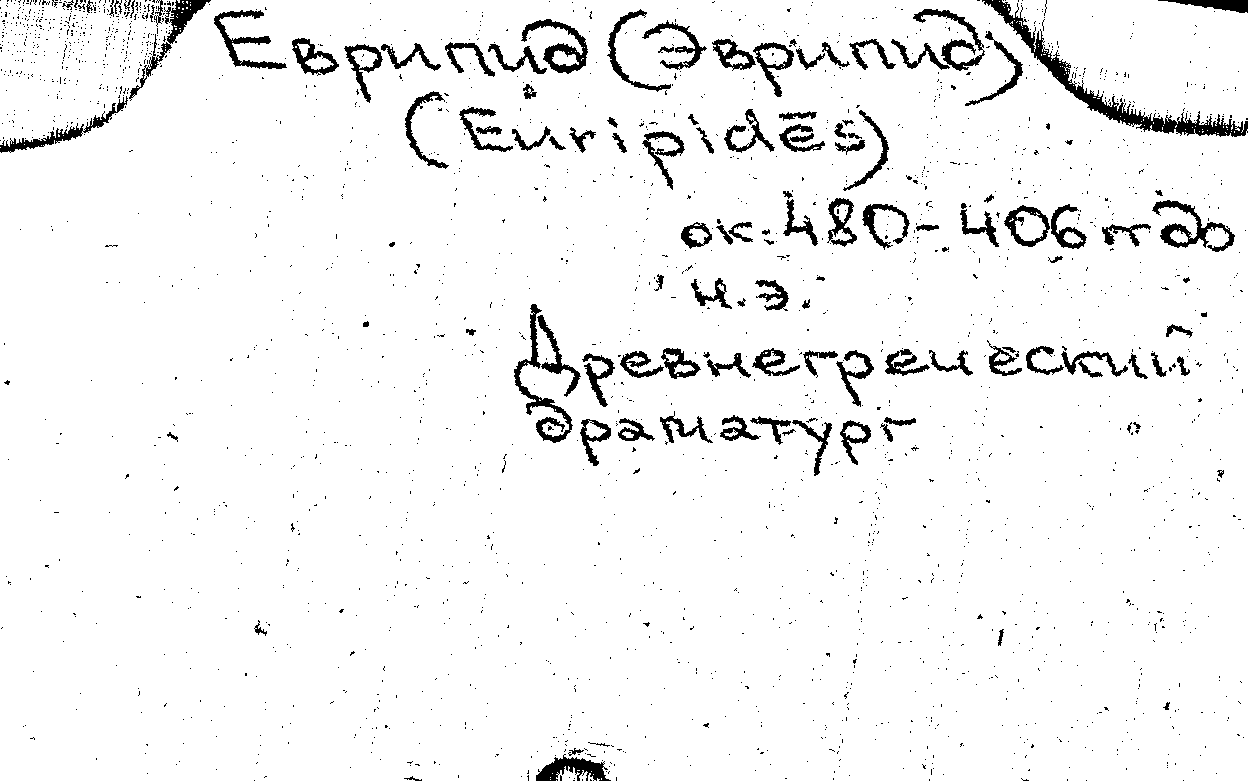 Еврипид (Эврипид)
(Euripidēs)
ок. 480-406 гг до
н.э.
Древнегреческий
драматург